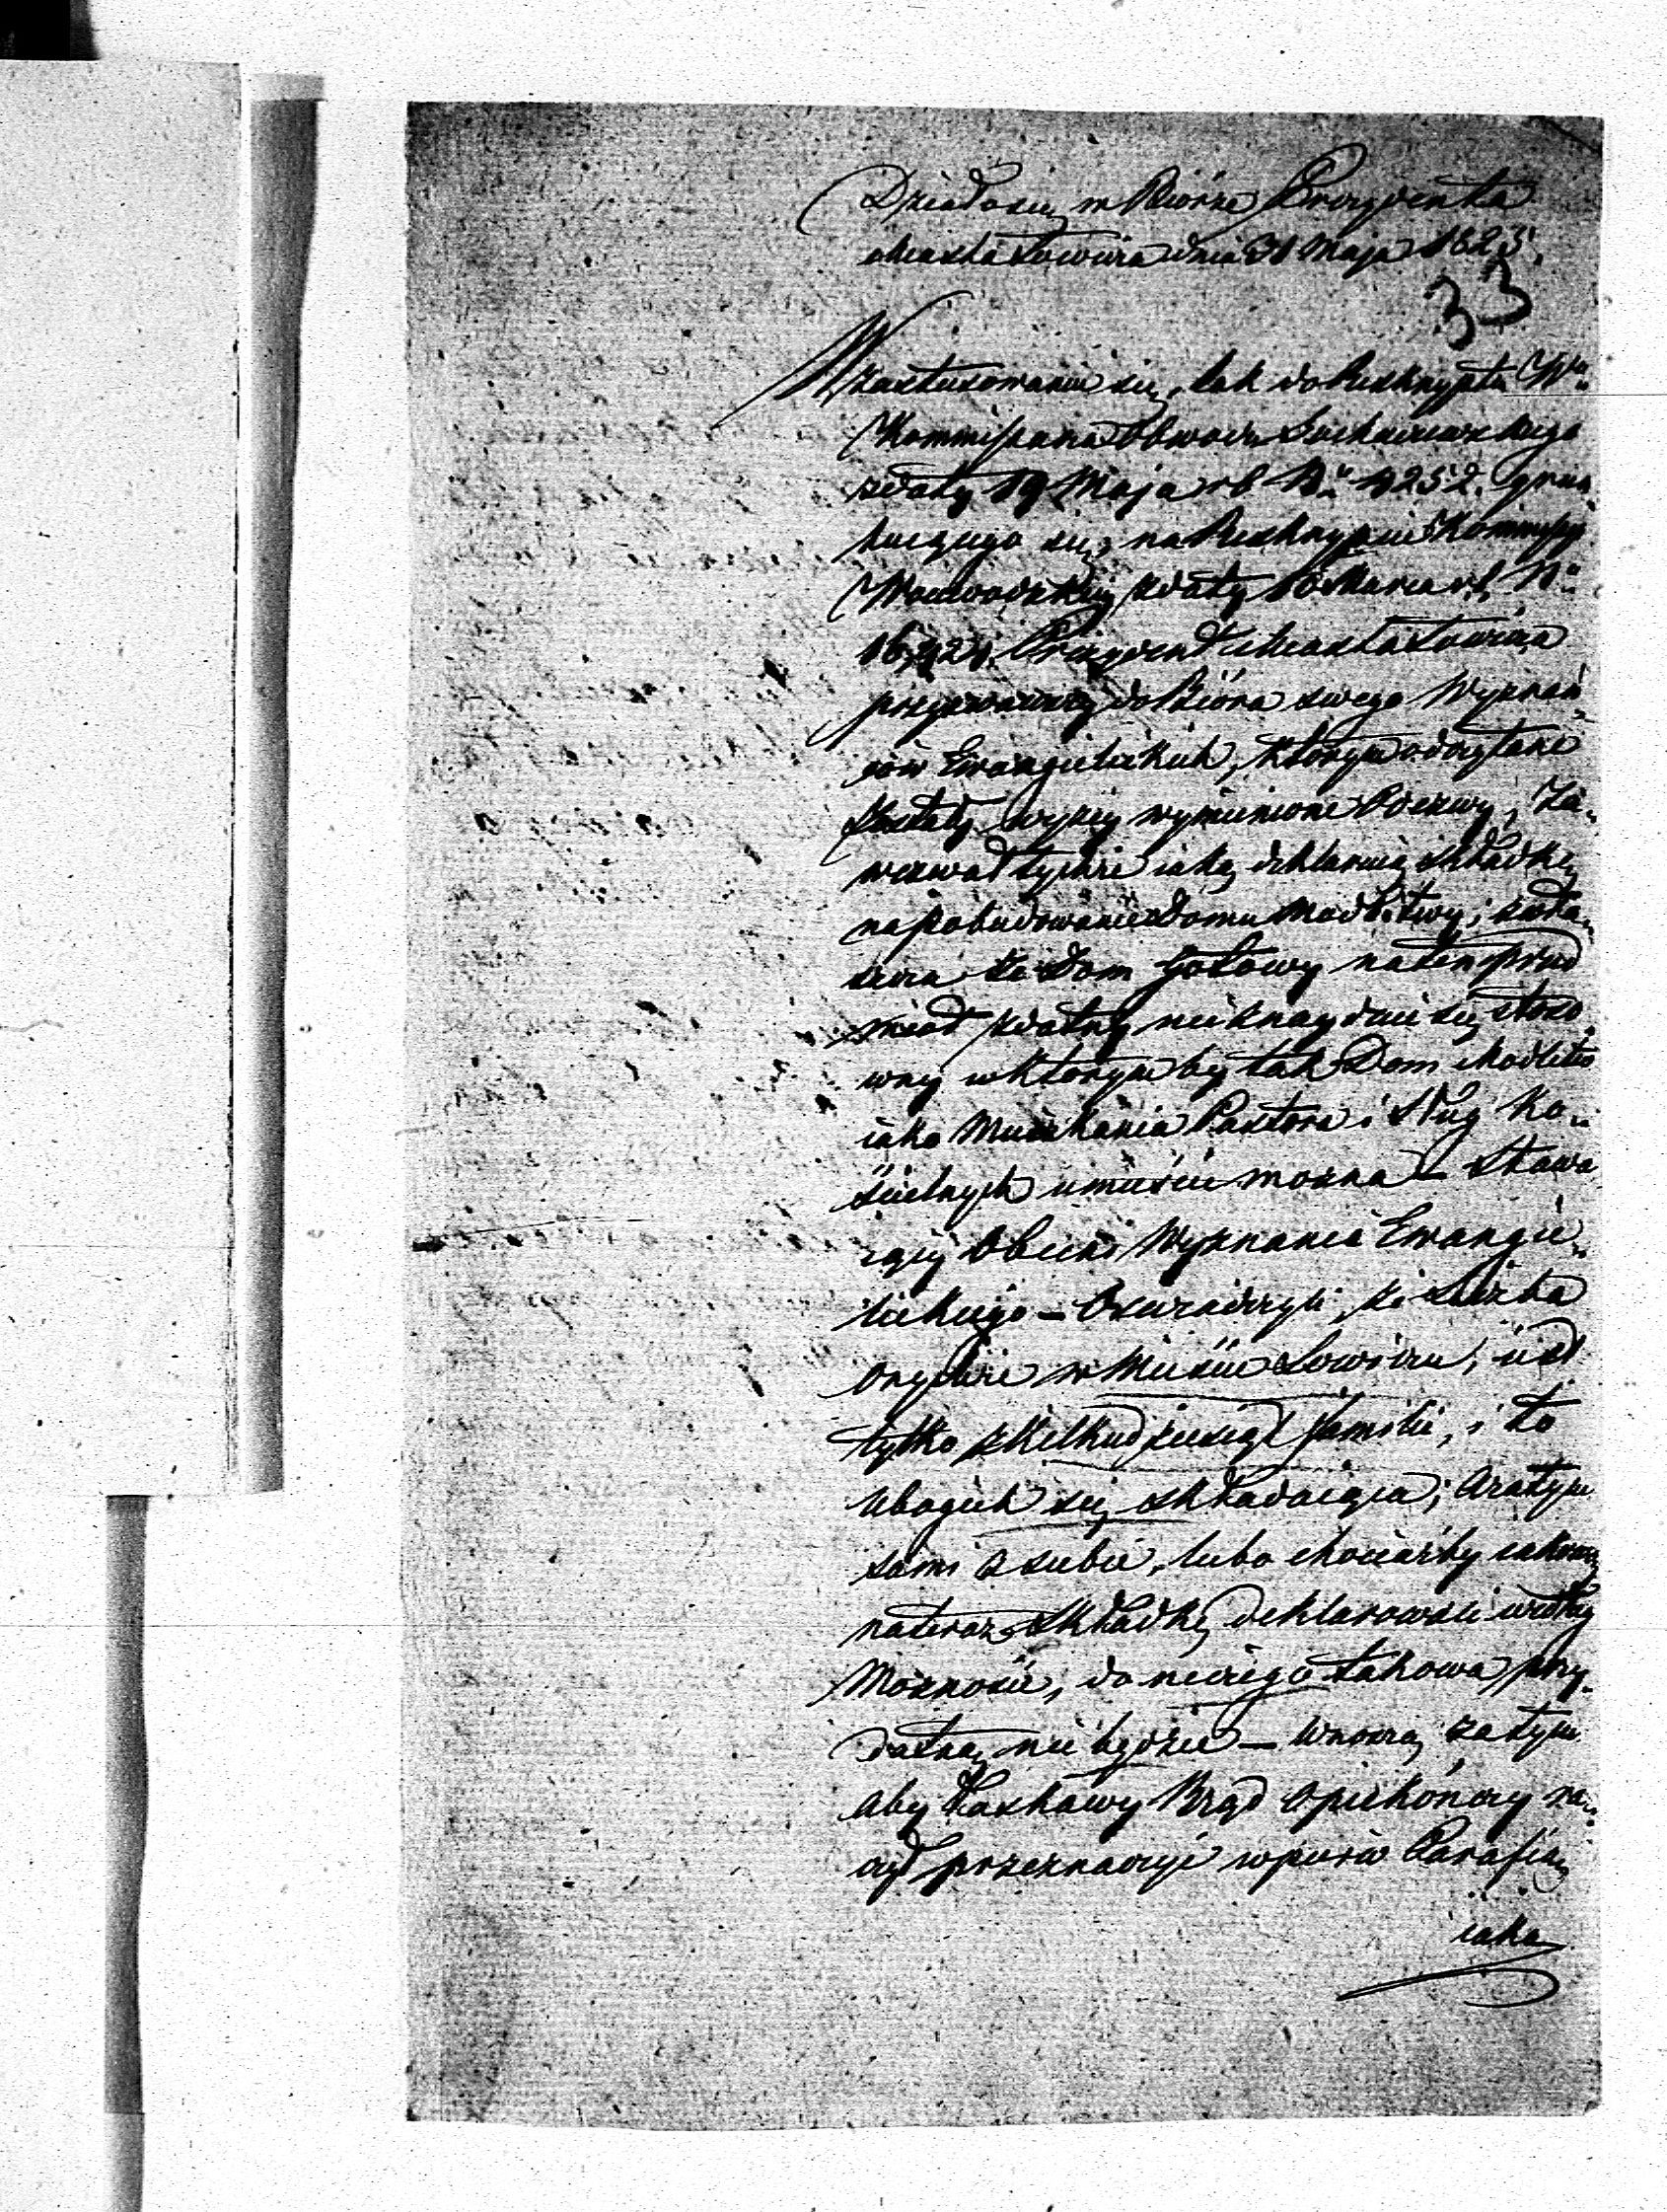 Działo się w Biórze Prezydenta
Miasta Łowicza dnia 31 Maja 1823.
33
W zastosowaniu się, tak do Reskryptu W°
Kommissarza Obwodu Sochaczewskiego
z daty 19 Maja rb N° 4252. grun„
tuiącego się, na Reskrypcie Kommissyi
Woiewodzkiey z daty Marca rb, N°
Prezydent Miasta Łowicza
przyzwawszy do Bióra swego Wyznań„
ców Ewangielickich, którym odczytane
zostały wyżey wymienione Odezwy, Za„
wezwał tychże iaką deklaruią składkę
na pobudowanie Domu Modlitwy; zwła„
szcza że Dom gotowy na ten przed
miot zdatny nieznayduie się stoso
wny w którym by tak Dom Modlitw
iako Mieszkania Pastora i Sług Ko„
ścielnych umieścić można — Stawa
iący Obecni Wyznania Ewangie„
lickiego — Oświadczyli, że Liczba
onychże w Mieście Łowiczu, iest
tylko z kilkudziesiąt familii, i to
ubogich się składaiąca; Azatym
sami z siebie, lubo chociażby iakową
nateraz składkę deklarowali wedłuż
Możności, do niczego takowa przy„
datną nie będzie — Wnoszą zatym
aby Łaskawy Rząd Opiekónczy ra„
czył przeznaczyć wprzód Parafią
iaka